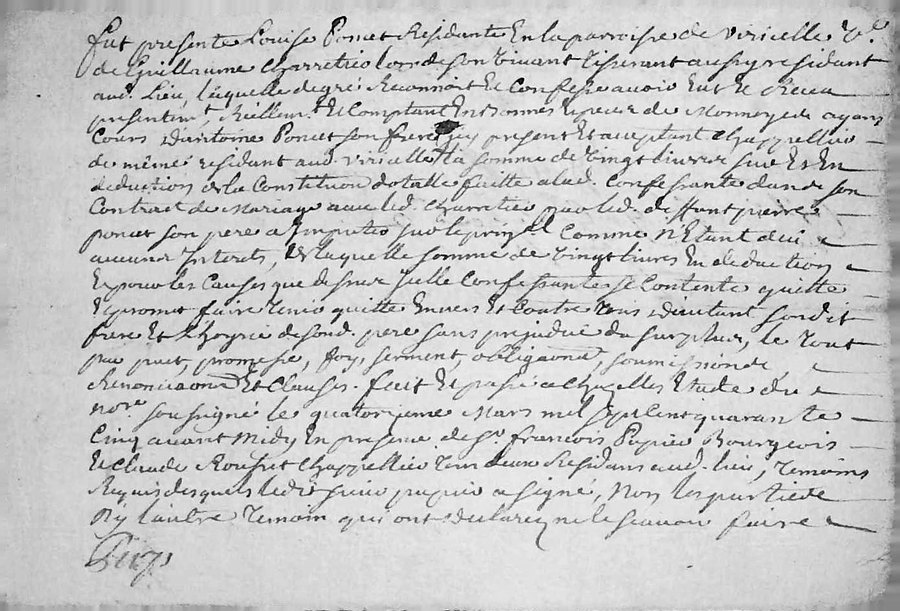 fut presente Louise Poncet Residante En la parroisse de viricelle v.ve
de Guillaume Charretier lors de son vivant tisserant aussy residant
aud. Lieu, laquelle de gré Reconnoit Et Confesse avoir Eut Et Receu
presentem.t Réellem.t Et Comptant En bonnes Especes de Monnoyes ayant
Cours d'antoine Poncet son frere icy present Et acceptant Chappellier
de même residant aud. viricelle la somme de vingt livres sur Et En
deduction de la Constitution dotalle faitte a lad. Confessante dans son
Contract de Mariage avec led. Charretier par led. deffunt pierre
poncet son pere a Imputer sur le prin.al Comme N'Etant deu
aucuns Interets, de laquelle somme de vingt livres En deduction
Et pour les Causes que dessus jcelle Confessante se Contente quitte
Et promet faire tenir quitte Envers Et Contre tous sondit
frere Et L'hoyrie de sond. pere sans prejudice du surplus, le tout
par pact, promesse, foy, serment, obliga͠ons, soumissions,
Renoncia͠ons Et Clauses. fait Et passé a Chazelles Etude du
no.re soussigné le quatorzieme Mars mil sept Cent quarante
Cinq avant Midy En presence de S.r francois Papier Bourgeois
Et Claude Chappellier tous deux Residans aud. lieu, temoins
Requis desquels ledit sieur papier a signé, Non les parties
Ny l'autre temoin qui ont declaré ne le scavoir faire